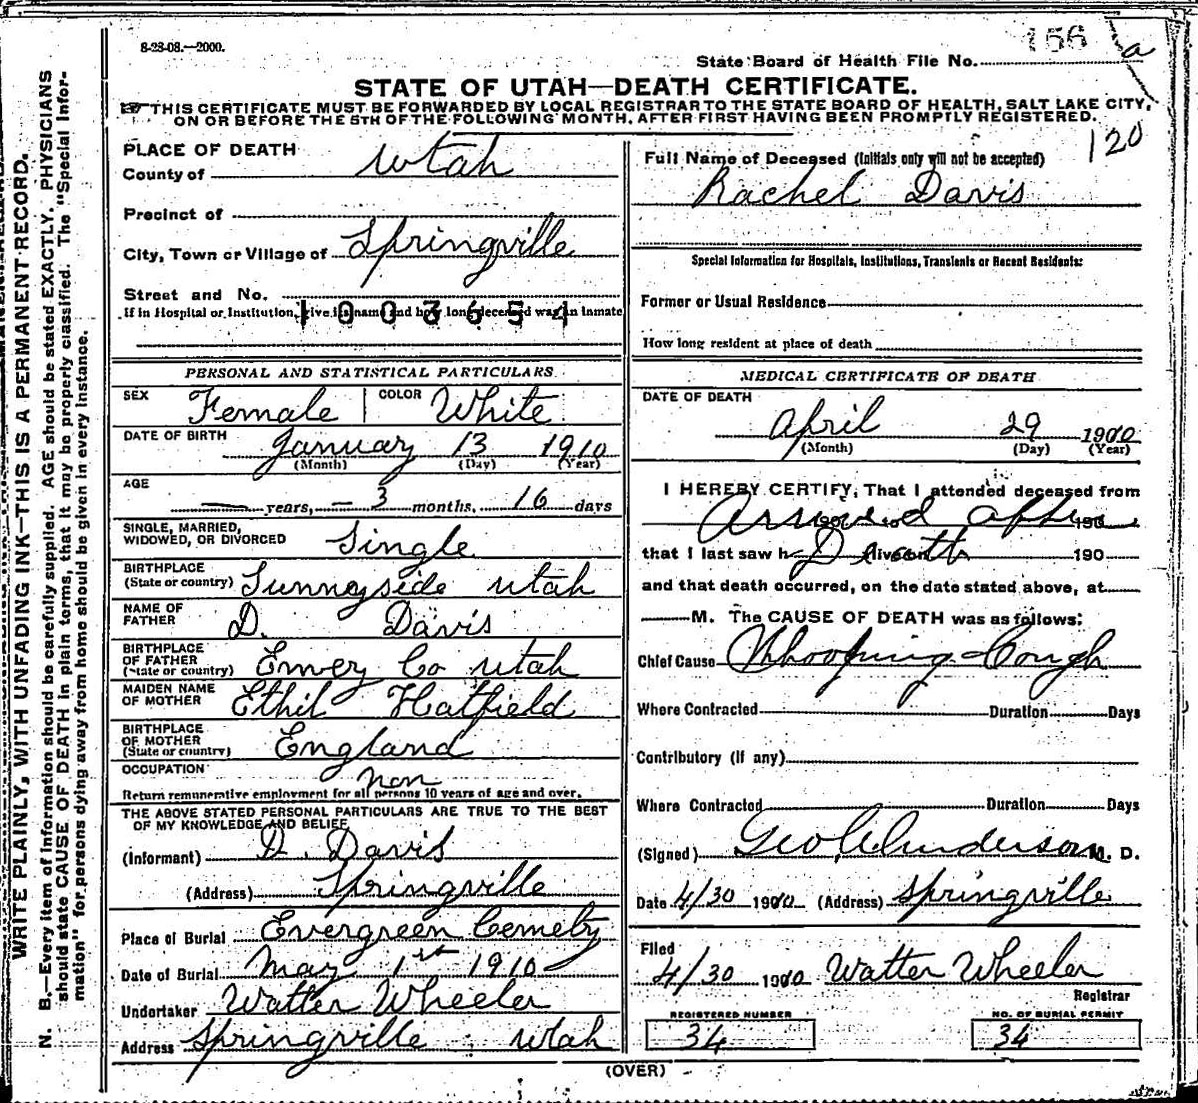 8-23-08.—2000.
156 a
State Board of Health File No.
STATE OF UTAH—DEATH CERTIFICATE.
THIS CERTIFICATE MUST BE FORWARDED BY LOCAL REGISTRAR TO THE STATE BOARD OF HEALTH, SALT LAKE CITY,
ON OR BEFORE THE 5TH OF THE FOLLOWING MONTH, AFTER FIRST HAVING BEEN PROMPTLY REGISTERED.
120
PLACE OF DEATH
County of Utah
Precinct of
City, Town or Village of Springville
Street and No.
1003654
If in Hospital or Institution, give its name and how long deceased was an inmate
Full Name of Deceased (Initials only will not be accepted)
Rachel Davis
Special Information for Hospitals, Institutions, Transients or Recent Residents:
Former or Usual Residence
How long resident at place of death
PERSONAL AND STATISTICAL PARTICULARS
SEX Female COLOR White
DATE OF BIRTH January 13 1910
(Month) (Day) (Year)
AGE — years, — 3 months, 16 days
SINGLE, MARRIED,
WIDOWED, OR DIVORCED Single
BIRTHPLACE
(State or country) Sunnyside Utah
NAME OF
FATHER D. Davis
BIRTHPLACE
OF FATHER
(State or country) Emery Co Utah
MAIDEN NAME
OF MOTHER Ethil Hatfield
BIRTHPLACE
OF MOTHER
(State or country) England
OCCUPATION non
Return remunerative employment for all persons 10 years of age and over.
THE ABOVE STATED PERSONAL PARTICULARS ARE TRUE TO THE BEST
OF MY KNOWLEDGE AND BELIEF
(Informant) D. Davis
(Address) Springville
Place of Burial Evergreen Cemety
Date of Burial May 1st 1910
Undertaker Walter Wheeler
Address Springville Utah
MEDICAL CERTIFICATE OF DEATH
DATE OF DEATH
April 29 1910
(Month) (Day) (Year)
I HEREBY CERTIFY, That I attended deceased from
Arrived after 190
that I last saw h Death alive on 190
and that death occurred, on the date stated above, at
M. The CAUSE OF DEATH was as follows:
Chief Cause Whooping Cough
Where Contracted Duration Days
Contributory (if any)
Where Contracted Duration Days
(Signed) Geo Anderson M. D.
Date 4/30 1910 (Address) Springville
Filed
4/30 1910 Walter Wheeler
Registrar
REGISTERED NUMBER
34
NO. OF BURIAL PERMIT
34
(OVER)
WRITE PLAINLY, WITH UNFADING INK—THIS IS A PERMANENT RECORD.
N. B.—Every item of information should be carefully supplied. AGE should be stated EXACTLY. PHYSICIANS
should state CAUSE OF DEATH in plain terms, that it may be properly classified. The "Special Infor-
mation" for persons dying away from home should be given in every instance.